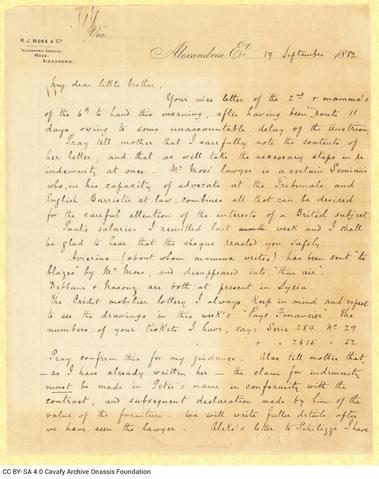 R. J. MOSS & Co
TELEGRAPHIC ADDRESS,
MOSS,
ALEXANDRIA.
Via
Alexandria Et. 17 September 1882
My dear little brother,
Your nice letter of the 2nd & mamma's
of the 6th to hand this morning, after having been "en route" 11
days owing to some unaccountable delay of the Austrian.
Pray tell mother that I carefully note the contents of
her letter, and that we will take the necessary steps in re
indemnity at once. Mr Moss' lawyer is a certain
who, in his capacity of advocate at the Tribunals and
English Barrister at law, combines all that can be desired
for the careful attention of the interests of a British subject.
Paul's salaries I remitted last month week and I shall
be glad to hear that the cheque reached you safely.
(about whom mamma writes) has been sent "to
blazes" by Mr Moss, and disappeared into "thin air".
Debbane & are both at present in Syria.
The Crédit mobilier lottery I always keep in mind and expect
to see the drawings in this week's "Pays Financier". The
numbers of your tickets I have, say: Serie 284 No 29
" 2615 " 52
Pray confirm this for my guidance. Also tell mother that
- as I have already written her - the claim for indemnity
must be made in Peter's name in conformity with the
contract, and subsequent declaration made by him of the
value of the furniture. We will write fuller details after
we have seen the lawyer. Aleko's letter to I have
CC BY-SA 4.0 Cavafy Archive Onassis Foundation